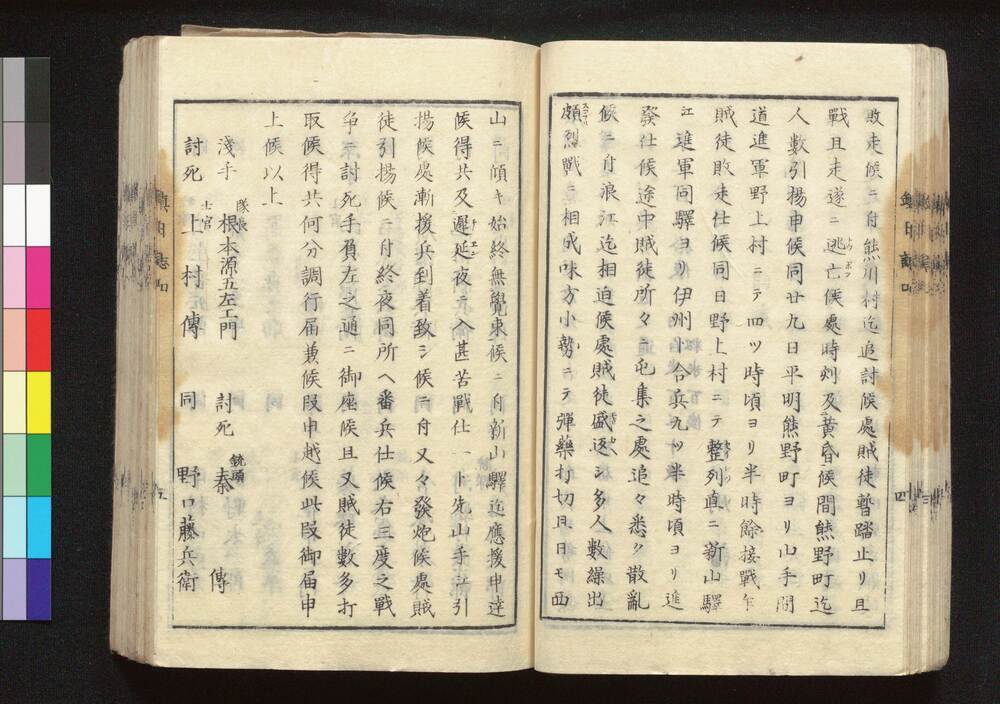 敗走候ニ付熊川村迄追討候處賊徒暫踏止リ且
戰且走遂ニ逃亡候處時刻及黄昏候間熊野町迄
人數引揚申候同廿九日平明熊野町ヨリ山手間
道進軍野上村ニテ四ツ時頃ヨリ半時餘接戰乍
賊徒敗走仕候同日野上村ニテ整列直ニ新山驛
江進軍同驛ヨリ伊州ト合兵九ツ半時頃ヨリ進
發仕候途中賊徒所々ニ屯集之處追々悉ク散亂
候ニ付浪江迄相迫候處賊徒盛返シ多人數繰出
頗烈戰ニ相成味方小勢ニテ彈藥打切且日モ西
山ニ傾キ始終無覺束候ニ付新山驛迄應援申達
候得共及遲延夜ニ入甚苦戰仕一ト先山手江引
揚候處漸援兵到着致シ候ニ付又々發炮候處賊
徒引揚候ニ付終夜同所ヘ番兵仕候右三度之戰
争ニ討死手負左之通ニ御座候且又賊徒數多打
取候得共何分調行届兼候段申越候此段御届申
上候以上
淺手 隊長 根本源五左エ門 討死 銃頭 泰 傳
討死 士官 上村傳 同 野口藤兵衛
四
五